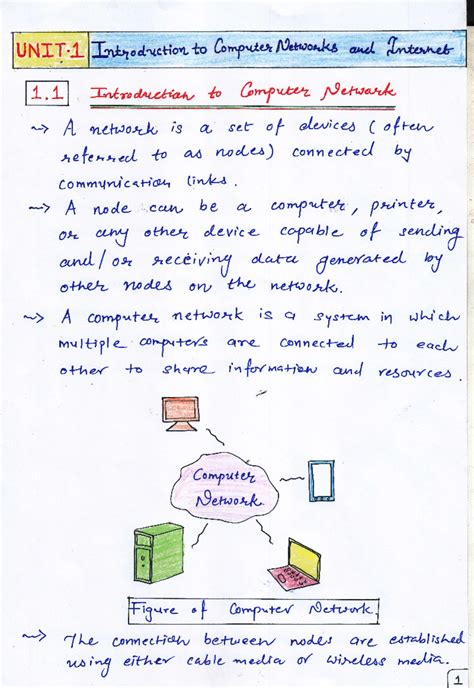 UNIT-1 Introduction to Computer Networks and Internet
1.1 Introduction to Computer Network
~> A network is a set of devices (often
referred to as nodes) connected by
communication links.
~> A node can be a computer, printer,
or any other device capable of sending
and/or receiving data generated by
other nodes on the network.
~> A computer network is a system in which
multiple computers are connected to each
other to share information and resources.
Computer
Network
Figure of Computer Network
~> The connection between nodes are established
using either cable media or wireless media.
1